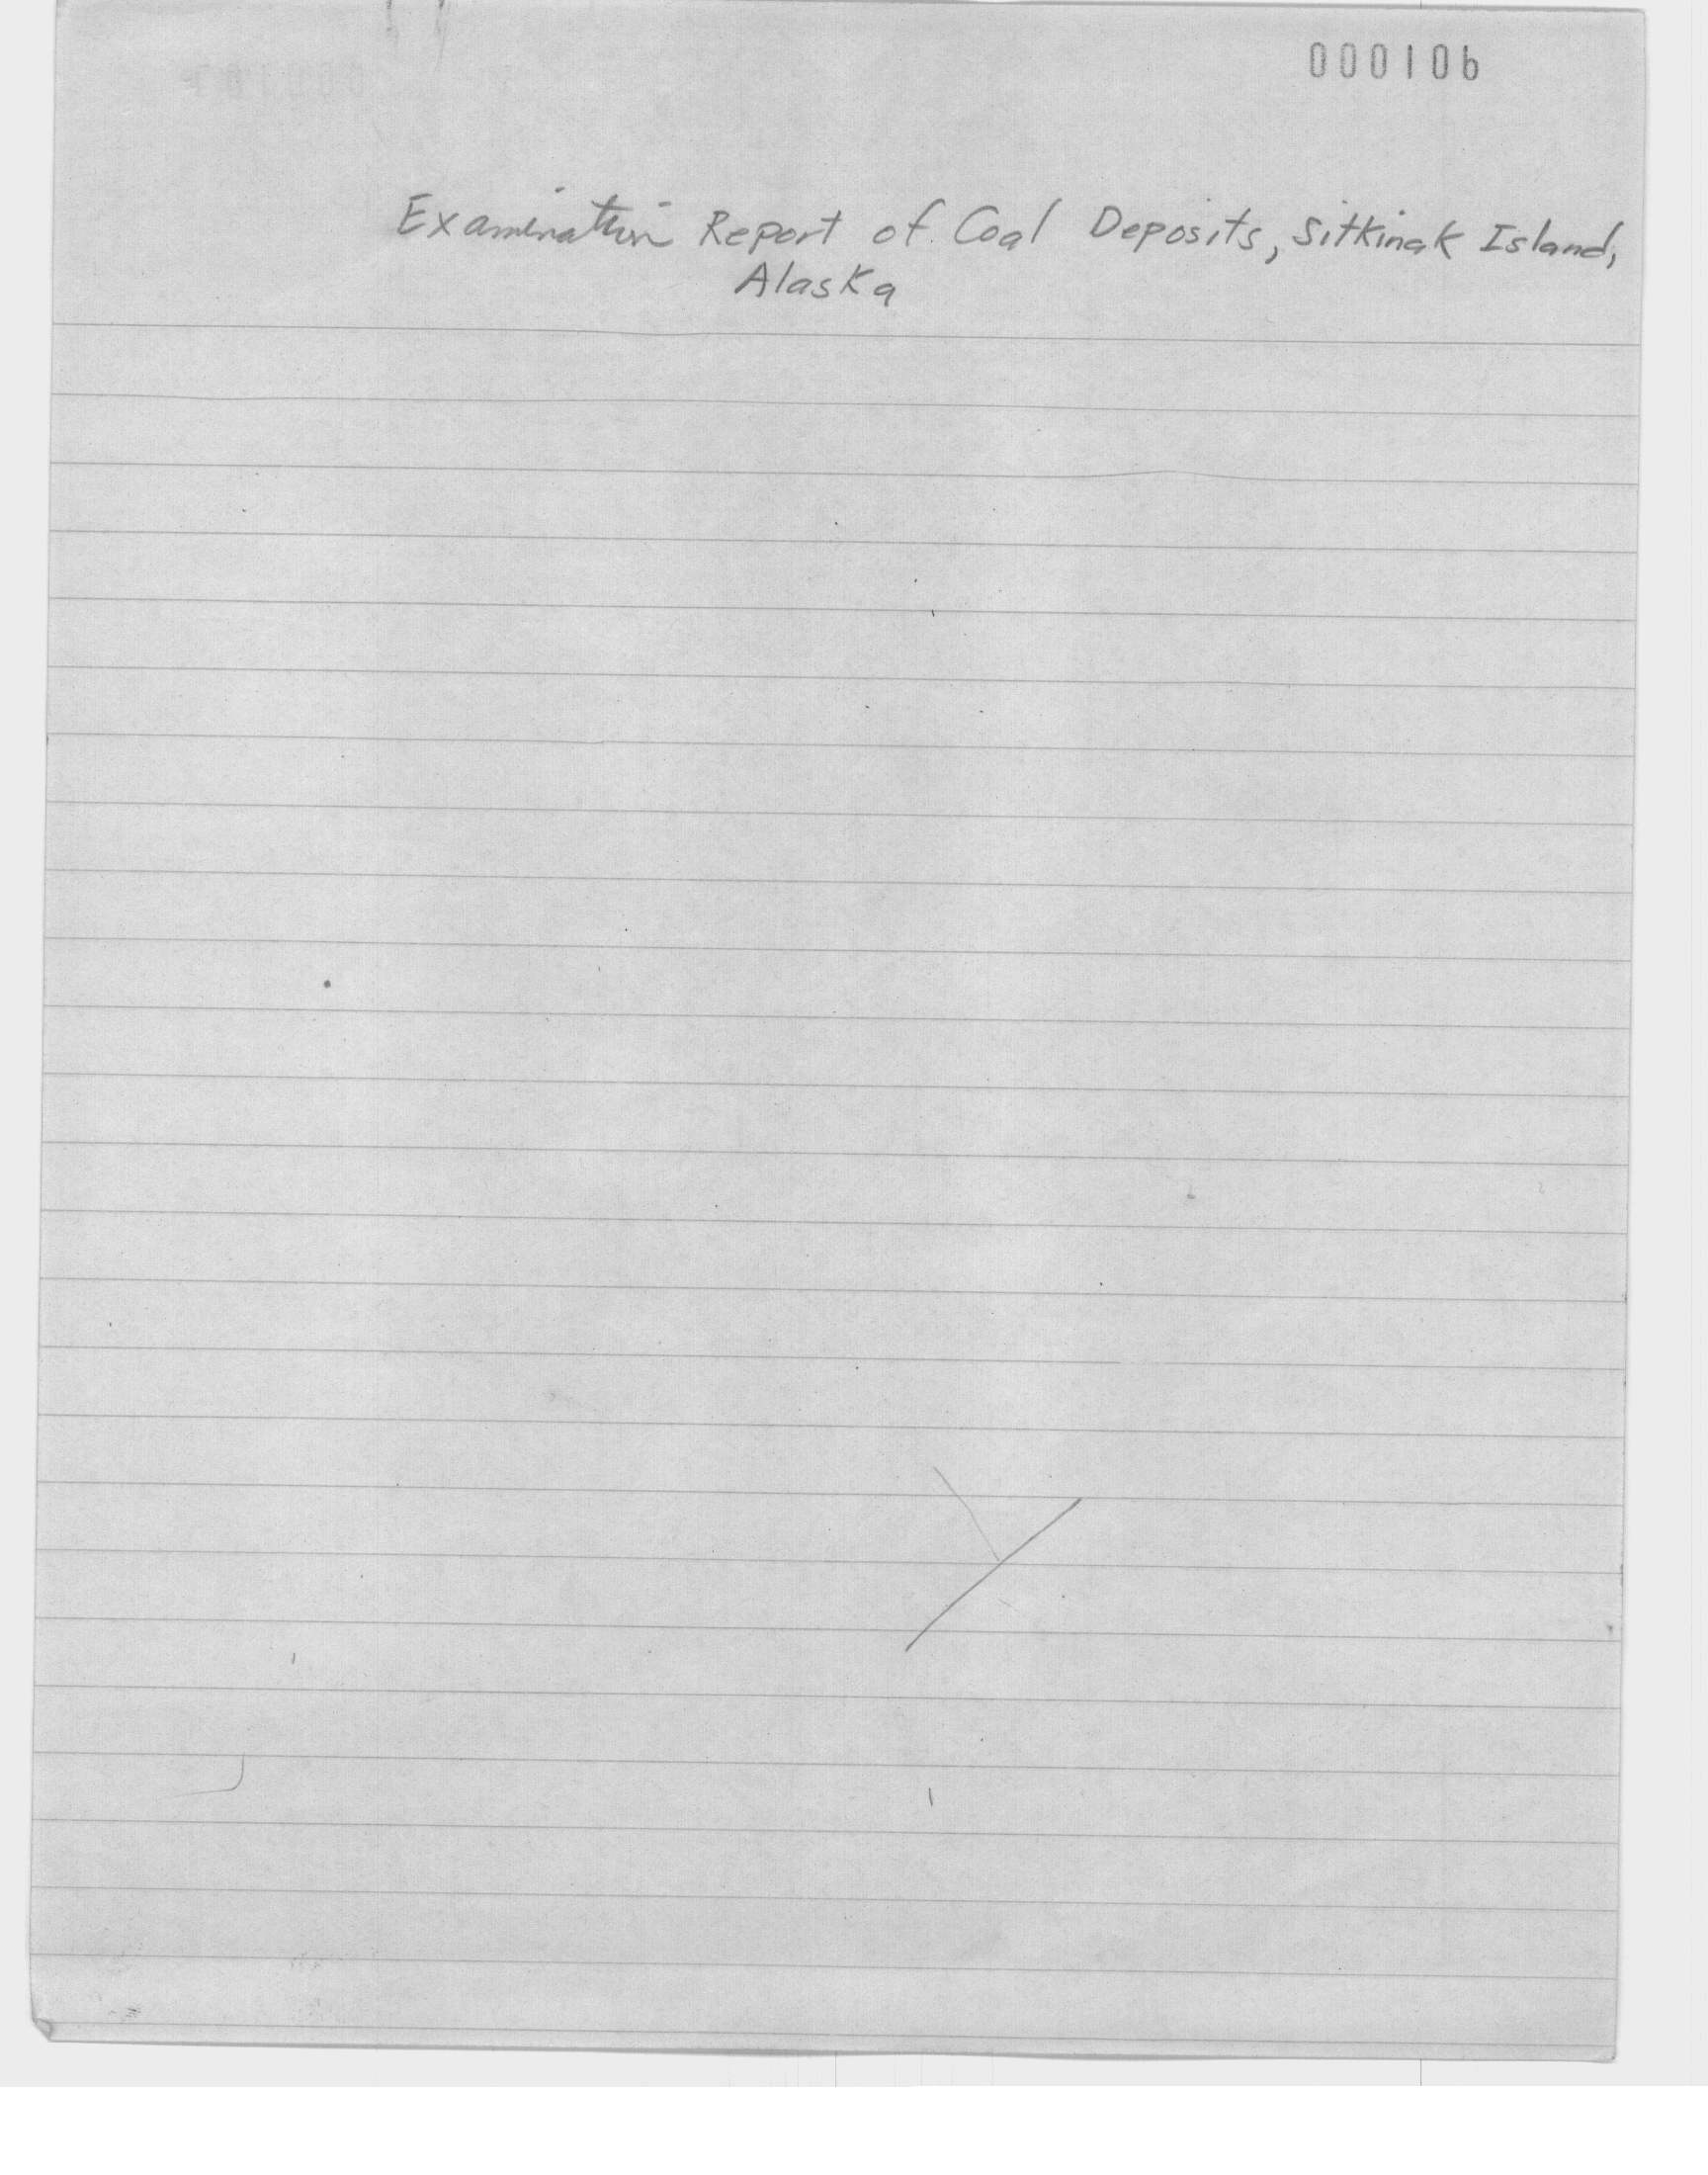 000106
Examination Report of Coal Deposits, Sitkinak Island,
Alaska